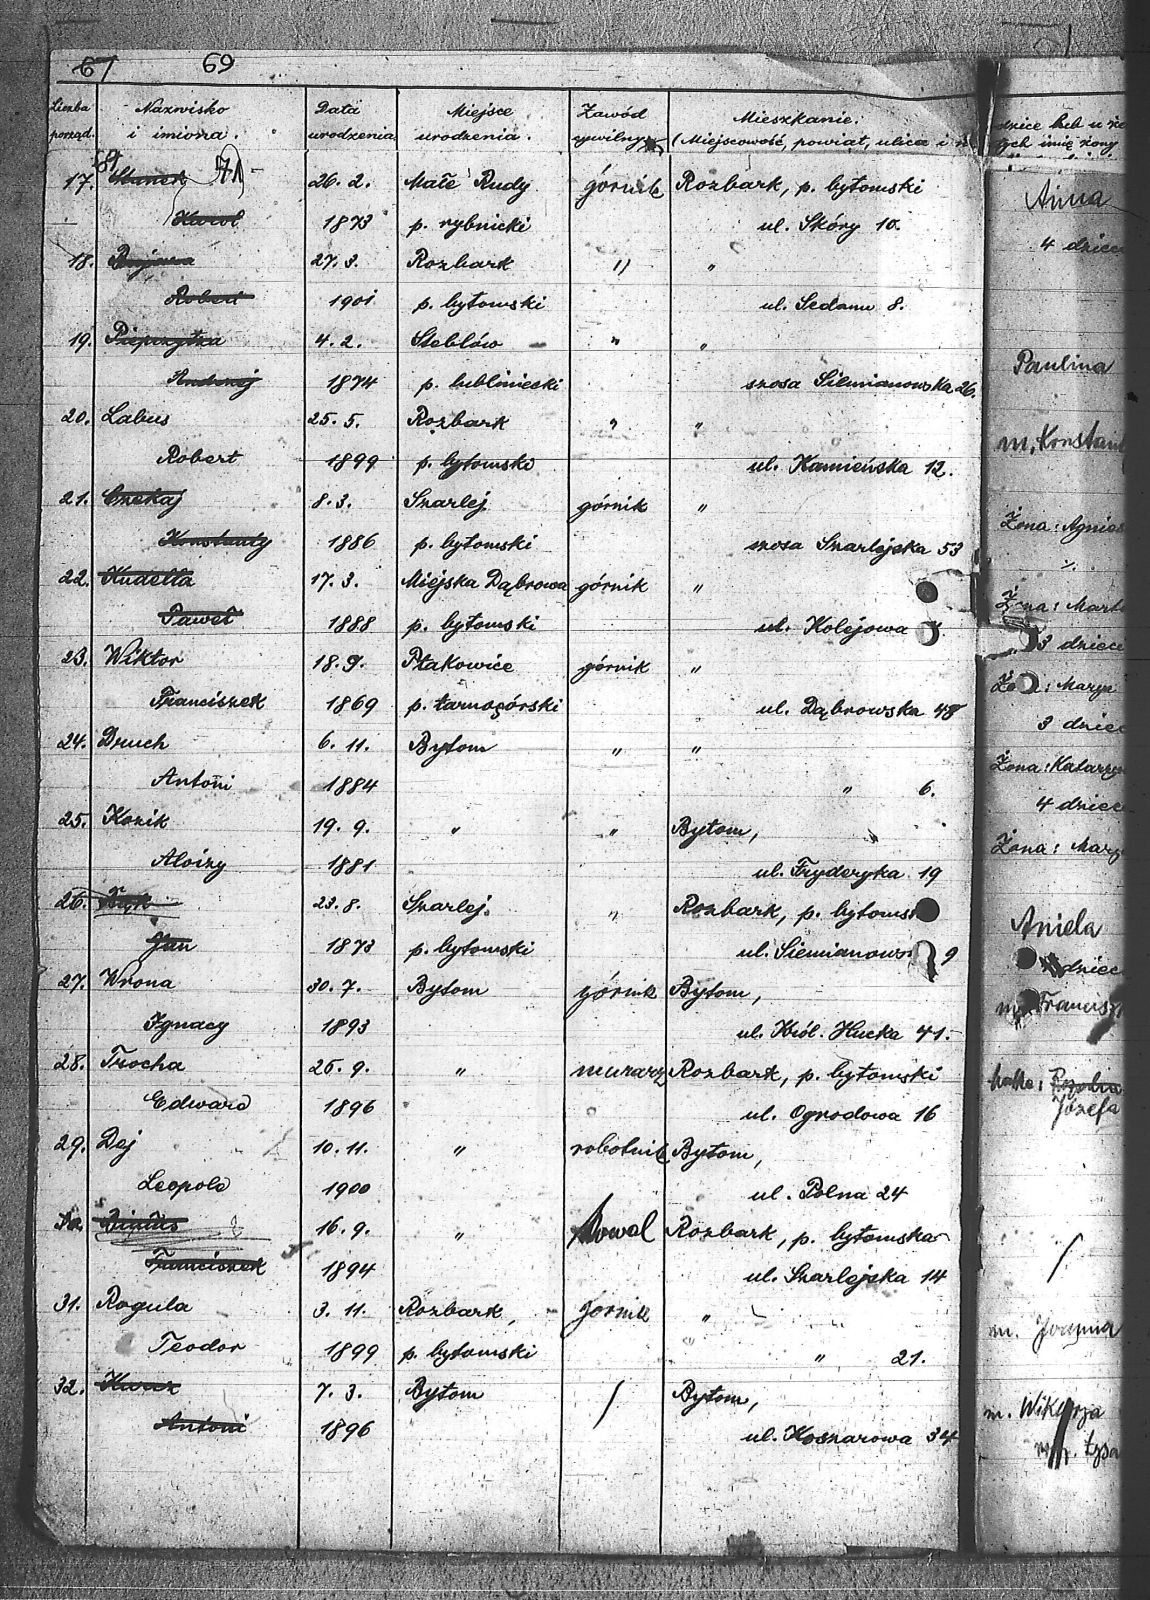 67 69
Liczba Nazwisko Data Miejsce Zawód Mieszkanie.
porząd. i imiona. urodzenia urodzenia. cywilny (Miejscowość, powiat, ulica i
17. Stanek 71 26. 2. Małe Rudy górnik Rozbark, p. bytomski Anna
Karol 1873 p. rybnicki ul. Skóry 10. 4 dzieci
18. 27. 3. Rozbark " "
Robert 1901 p. bytomski ul. Sedanu 8.
19. Pieprzytza 4. 2. Steblów " " Paulina
Andrzej 1874 p. lubliniecki szosa Siemianowska 26.
20. Labus 25. 5. Rozbark " " m. Konstant
Robert 1899 p. bytomski ul. Kamieńska 12.
21. Czekaj 8. 3. Szarlej górnik " Żona: Agnies
Konstanty 1886 p. bytomski szosa Szarlejska 53
22. Kudella 17. 3. Miejska Dąbrowa górnik " Żona: Mart
Paweł 1888 p. bytomski ul. Kolejowa 3 dzieci
23. Wiktor 18. 9. Ptakowice górnik " Żona: Marya
Franciszek 1869 p. tarnogórski ul. Dąbrowska 48 3 dzieci
24. Druch 6. 11. Bytom " " Żona: Katarzyn
Antoni 1884 " 6. 4 dzieci
25. Kozik 19. 9. " " Bytom, Żona: Mary
Aloizy 1881 ul. Fryderyka 19
26. Bąk 23. 8. Szarlej " Rozbark, p. bytoms Aniela
Jan 1873 p. bytomski ul. Siemianows 9 dzieci
27. Wrona 30. 7. Bytom górnik Bytom, m. Francisz
Ignacy 1893 ul. Król. Hucka 41.
28. Trocha 26. 9. " murarz Rozbark, p. bytomski Matka: Rozalia
Edward 1896 ul. Ogrodowa 16 Józefa
29. Dej 10. 11. " robotnik Bytom,
Leopold 1900 ul. Polna 24
30. 16. 9. " Kowal Rozbark, p. bytomska /
Franciszek 1894 ul. Szarlejska 14
31. Rogula 3. 11. Rozbark, górnik " m. Joanna
Teodor 1899 p. bytomski " 21.
32. Kurz 7. 3. Bytom / Bytom, m. Wiktorja
Antoni 1896 ul. Koszarowa 34 Łysa